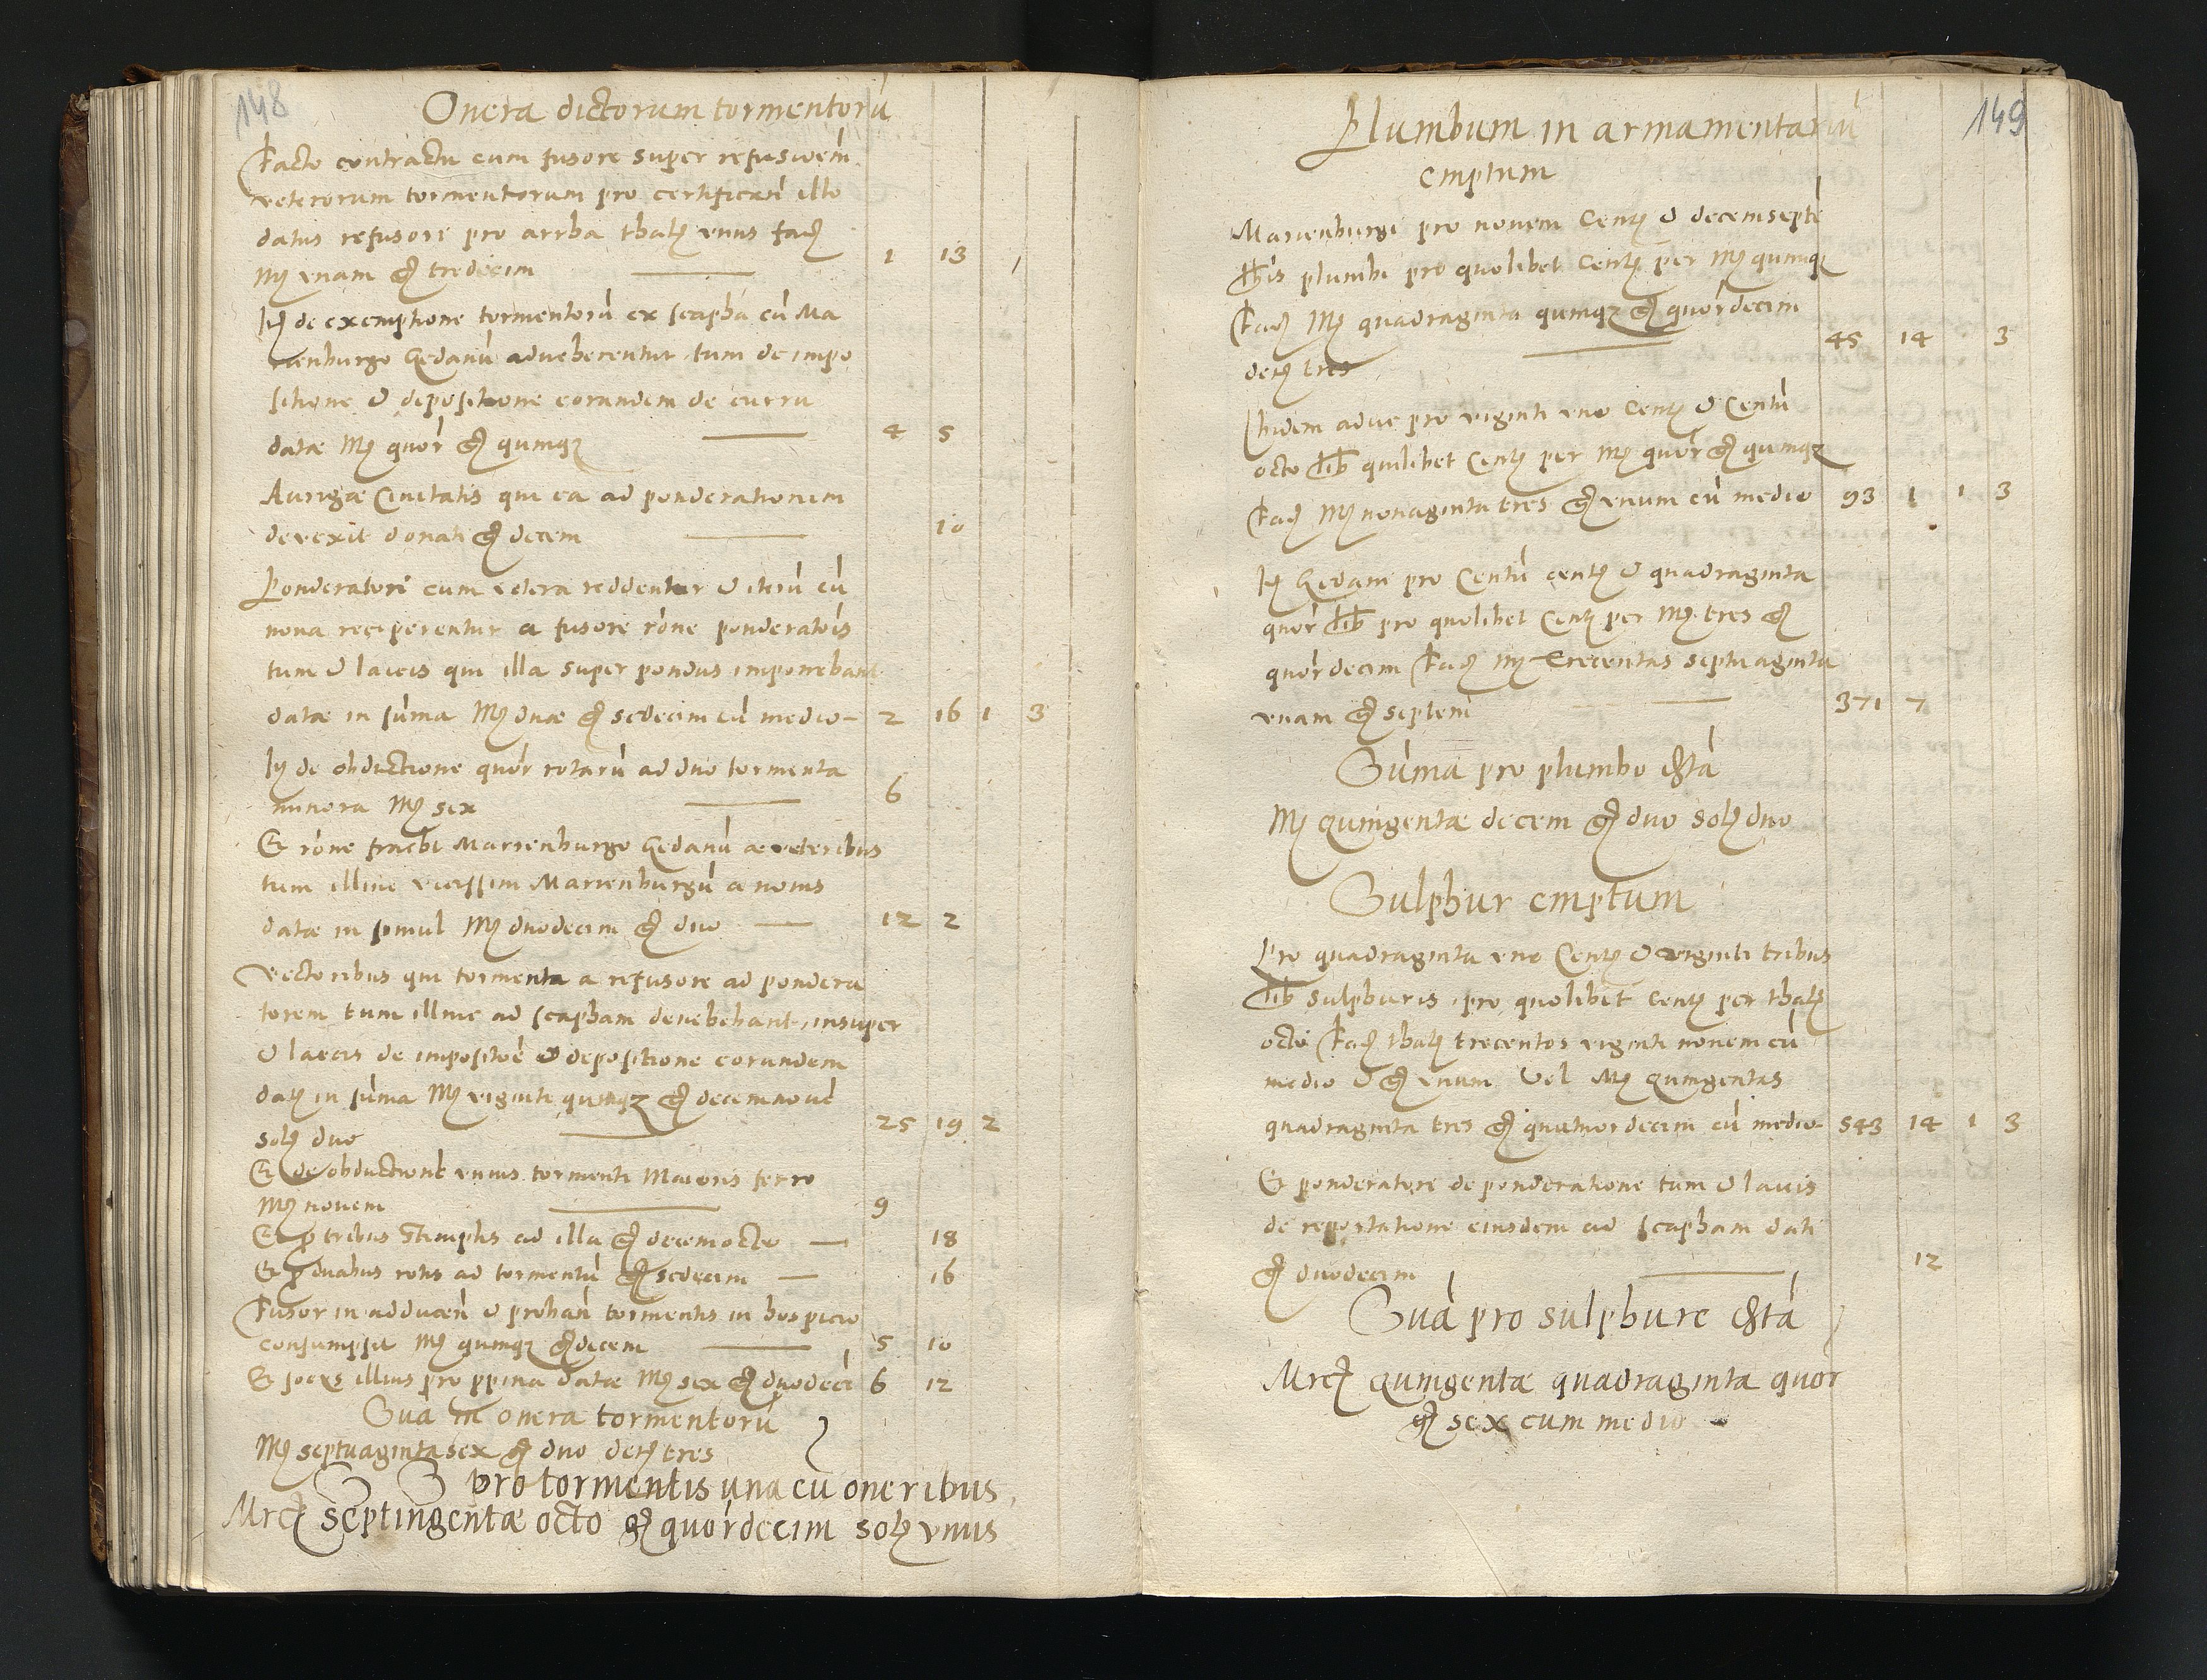 148
Onera dictorum tormentorū
Facto contractu cum fusore super refusioem
veterorum tormentorum pro certifican illo
datus refusori pro arrha thaℓ unus fac
Mr unam gr tredecim 1 13
It de exemptione tormentorū ex scapha cū Ma
rienburgo Gedanū adveherentur tum de impo
sitione & depositione eorundem de curru
datæ Mr quor gr quinqȝ 4 5
Aurigæ Civitatis qui ea ad ponderationem
devexit donati gr decem 10
Ponderatori cum vetera reddentur & iterū cū
nova reciperentur a fusore rone ponderatois
tum & laicis qui illa super pondus imponebant
datæ in suma Mr duæ gr sedecim cū medio 2 16 1 3
It de obductione quor rotarū ad duo tormenta
minora Mr sex 6
Et rone fracht Marienburgo Gedanū a veteribus
tum illinc vicissim Marienburgū a novis
datæ in simul Mr duodecim gr duo 12 2
Vectoribus qui tormenta a refusore ad pondera
torem tum illinc ad scapham devehebant, insuper
& laicis de impositoe & depositione eorundem
dat in suma Mr viginti quinqȝ gr decemnove
sol duo 25 19 2
Et de obductione unius tormenti maioris ferro
Mr novem 9
Et p tribus stemplis ad illa gr decemocto 18
Et p duabus rotis ad tormentū gr sedecim 16
Fusor in adducen & proban tormentis in hospicio
consumpsit Mr quinqȝ gr decem 5 10
Et socys illius pro ppina datæ Mr sex gr duodeci 6 12
Sua in onera tormentorū
Mr septuaginta sex gr duo den tres
pro tormentis una cū oneribus
Mrc septingentæ octo gr quordecim sol unus
149
Plumbum in armamentariū
emptum
Marienburgi pro novem Cent & decemsepte
libis plumbi pro quolibet Cent per Mr quinqȝ
Fac Mr quadraginta quinqȝ gr quordecim
den tres 45 14 3
Ibidem adhuc pro viginti uno Cent & Centū
octo lib quilibet Cent per Mr quor gr quinqȝ
Fac Mr nonaginta tres gr unum cū medio 93 1 1 3
It Gedani pro Centū cent & quadraginta
quor lib pro quolibet Cent per Mr tres gr
quordecim Fac Mr Trecentas septuaginta
unam gr septem 371 7
Suma pro plumbo ſta
Mr quingentæ decem gr duo sol duo
Sulphur emptum
Pro quadraginta uno Cent & viginti tribus
lib sulphuris, pro quolibet cent per thal
octo Fac thal trecentos viginti novem cū
medio & gr unum vel Mr quingentas
quadraginta tres gr quatuordecim cū medio 543 14 1 3
Et ponderatore de ponderatione tum & laicis
de reportatione eiusdem ad scapham dati
gr duodecim 12
Sua pro sulphure ſta
Mrc quingentæ quadraginta quor
gr sex cum medio